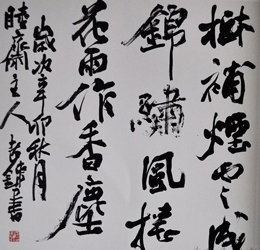 樹補煙雲成
錦繡風捲
花雨作香塵
歲次辛卯秋月
睦齋主人書